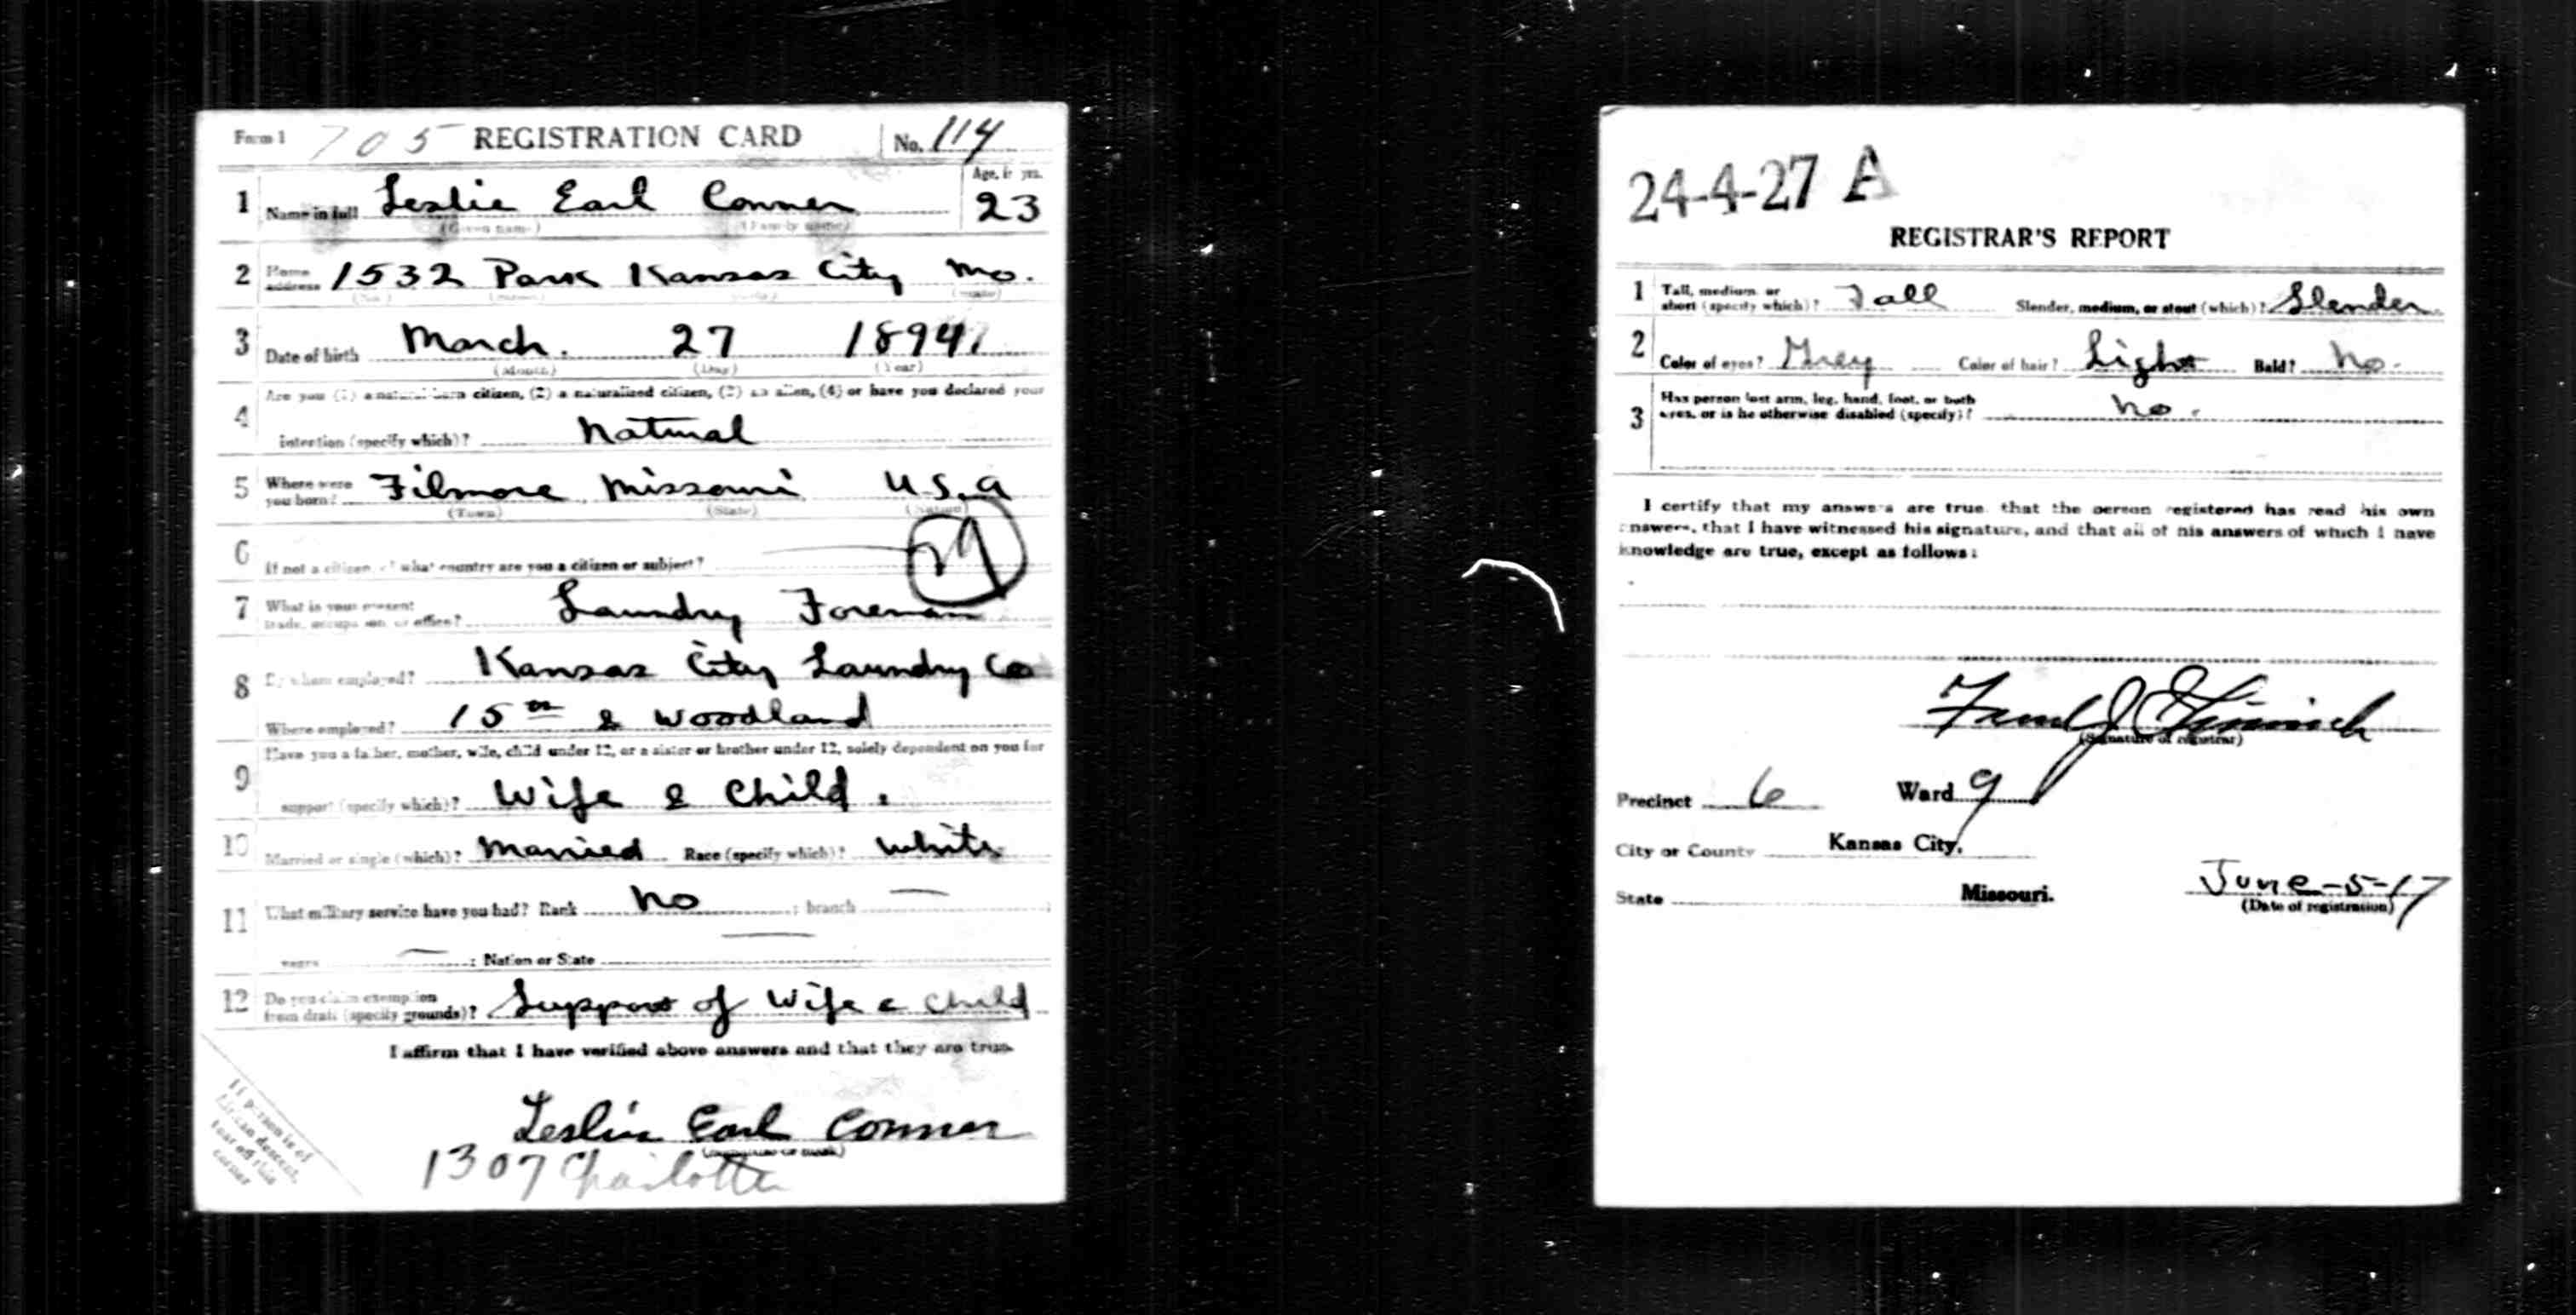 Form 1 705 REGISTRATION CARD No. 114
1 Name in full Leslie Earl Conner Age, in yrs. 23
(Given name) (Family name)
2 Home address 1532 Park Kansas City Mo.
(No.) (Street) (City) (State)
3 Date of birth March. 27 1894
(Month) (Day) (Year)
4 Are you (1) a natural-born citizen, (2) a naturalized citizen, (3) an alien, (4) or have you declared your
intention (specify which)? Natural
5 Where were you born? Filmore Missouri U.S.A
(Town) (State) (Nation)
6 If not a citizen, of what country are you a citizen or subject?
7 What is your present trade, occupation, or office? Laundry Foreman
8 By whom employed? Kansas City Laundry Co
Where employed? 15th & Woodland
9 Have you a father, mother, wife, child under 12, or a sister or brother under 12, solely dependent on you for
support (specify which)? Wife & Child.
10 Married or single (which)? Married Race (specify which)? White
11 What military service have you had? Rank No ; branch —
years — ; Nation or State —
12 Do you claim exemption from draft (specify grounds)? Support of Wife & Child
I affirm that I have verified above answers and that they are true.
Leslie Earl Conner
(Signature or mark)
1307 Charlotte
If person is of
African descent,
tear off this
corner
24-4-27 A
REGISTRAR'S REPORT
1 Tall, medium, or short (specify which)? Tall Slender, medium, or stout (which)? Slender
2 Color of eyes? Grey Color of hair? Light Bald? No.
3 Has person lost arm, leg, hand, foot, or both eyes, or is he otherwise disabled (specify)? No.
I certify that my answers are true, that the person registered has read his own
answers, that I have witnessed his signature, and that all of his answers of which I have
knowledge are true, except as follows:
(Signature of registrar)
Precinct 6 Ward 9
City or County Kansas City,
State Missouri. June-5-17
(Date of registration)